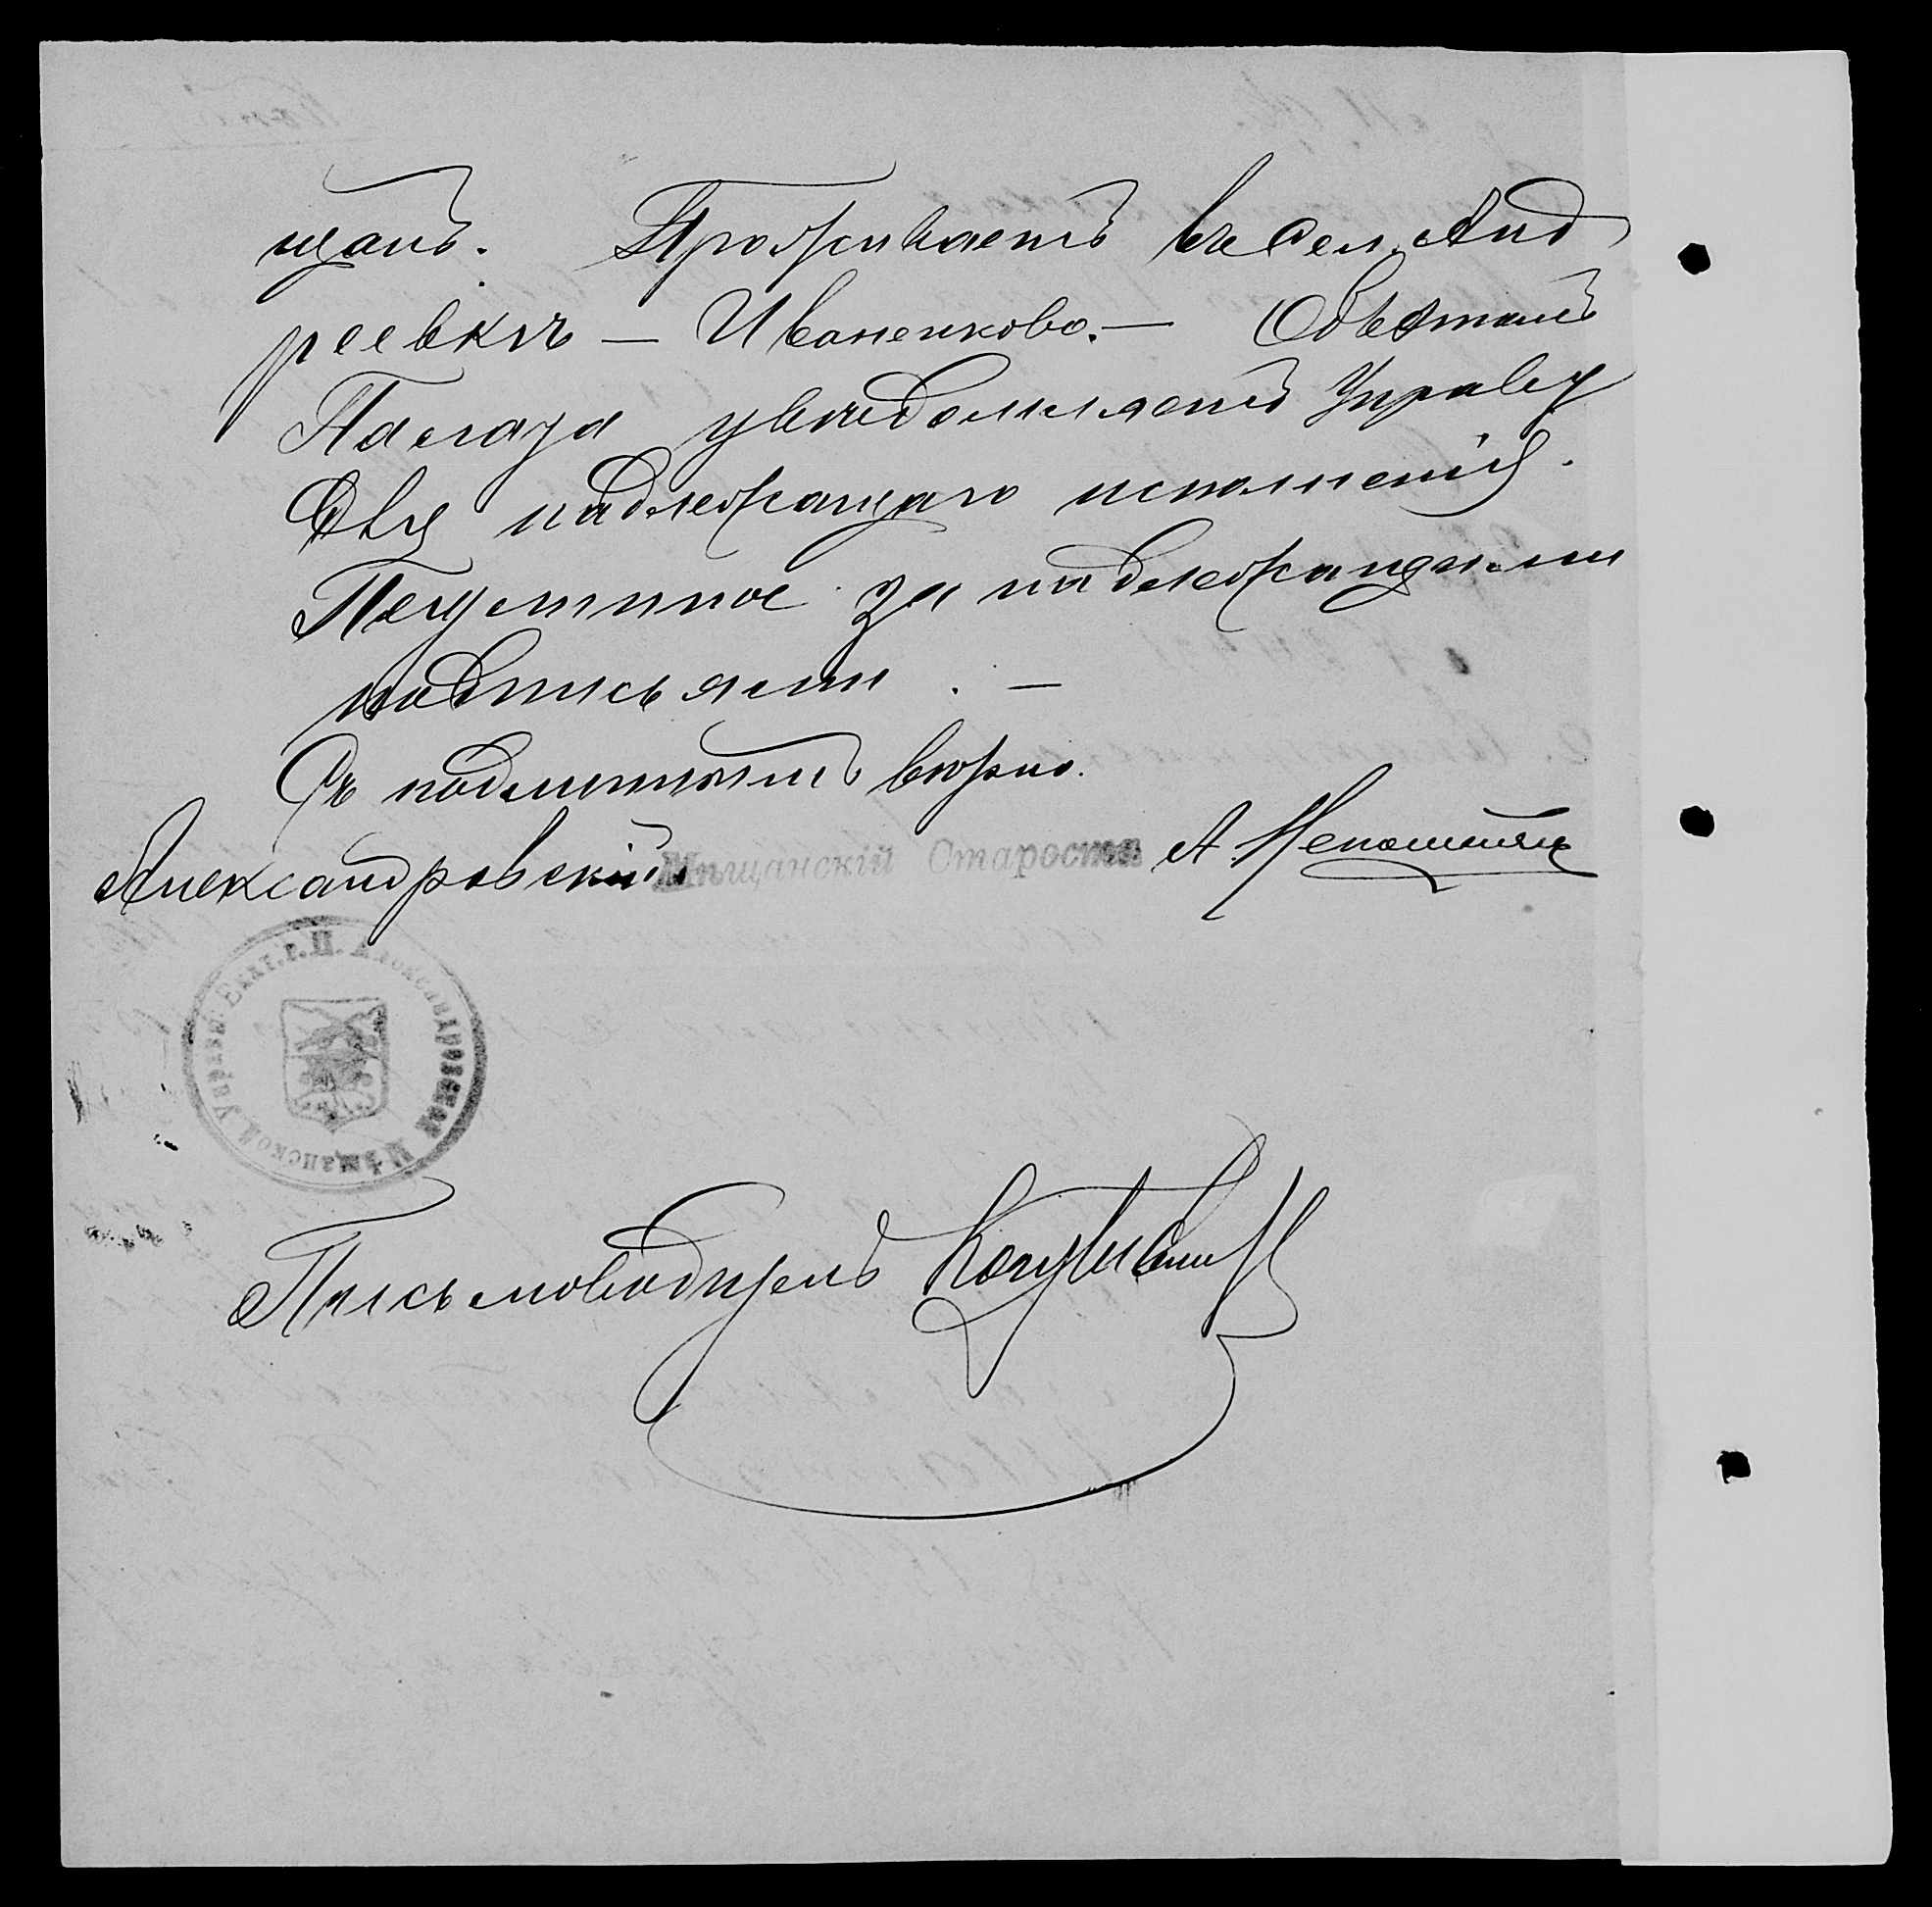 щанъ. Проживаетъ въ сел. Анд
реевкѣ — Иваненково. — О чемъ
Палата увѣдомляетъ Управу
для надлежащаго исполненія.
Подлинное за надлежащими
подписями. —
Съ подлиннымъ вѣрно.
Александровскій Мѣщанскій Староста А. Непомнящ
Екат. г. П. Александровской Мѣщанской Управы
Письмоводитель